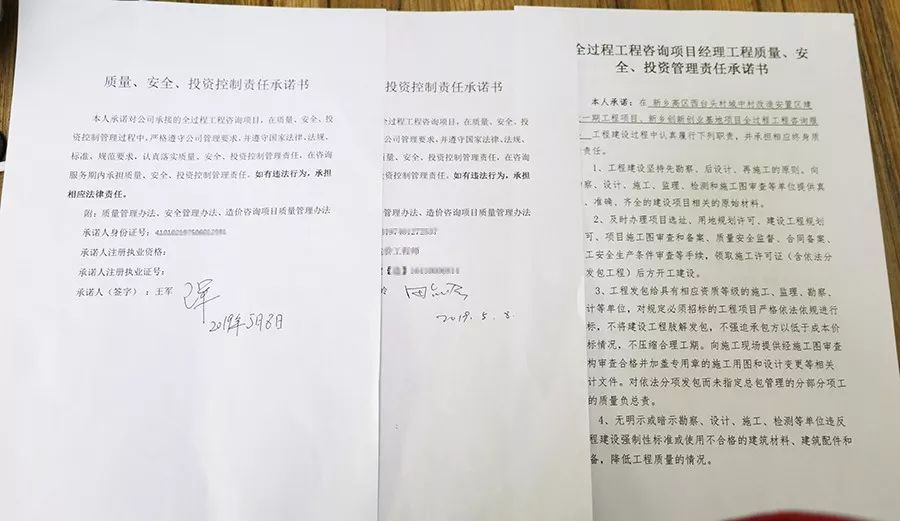 质量、安全、投资控制责任承诺书
本人承诺对公司承接的全过程工程咨询项目，在质量、安全、投
资控制管理过程中，严格遵守公司管理要求，并遵守国家法律、法规、
标准、规范要求，认真落实质量、安全、投资控制管理责任，在咨询
服务期内承担质量、安全、投资控制管理责任。如有违法行为，承担
相应法律责任。
附：质量管理办法、安全管理办法、造价咨询项目质量管理办法
承诺人身份证号：
承诺人注册执业资格：
承诺人注册执业证号：
承诺人（签字）：王军
2019年5月8日
投资控制责任承诺书
全过程工程咨询项目，在质量、安全、投
公司管理要求，并遵守国家法律、法规、
质量、安全、投资控制管理责任，在咨询
投资控制管理责任。如有违法行为，承担
法、造价咨询项目质量管理办法
工程师
2019.5.8.
全过程工程咨询项目经理工程质量、安
全、投资管理责任承诺书
本人承诺：在 新乡高区西台头村城中村改造安置区建
一期工程项目、新乡创新创业基地项目全过程工程咨询服
工程建设过程中认真履行下列职责，并承担相应终身质
责任。
1、工程建设坚持先勘察、后设计、再施工的原则。向
察、设计、施工、监理、检测和施工图审查等单位提供真
、准确、齐全的建设项目相关的原始材料。
2、及时办理项目选址、用地规划许可、建设工程规划
可、项目施工图审查和备案、质量安全监督、合同备案、
工安全生产条件审查等手续，领取施工许可证（含依法分
发包工程）后方开工建设。
3、工程发包给具有相应资质等级的施工、监理、勘察、
计等单位，对规定必须招标的工程项目严格依法依规进行
标，不将建设工程肢解发包，不强迫承包方以低于成本价
标情况，不压缩合理工期。向施工现场提供经施工图审查
构审查合格并加盖专用章的施工用图和设计变更等相关
计文件。对依法分项发包而未指定总包管理的分部分项工
的质量负总责。
4、无明示或暗示勘察、设计、施工、检测等单位违反
程建设强制性标准或使用不合格的建筑材料、建筑配件和
备，降低工程质量的情况。